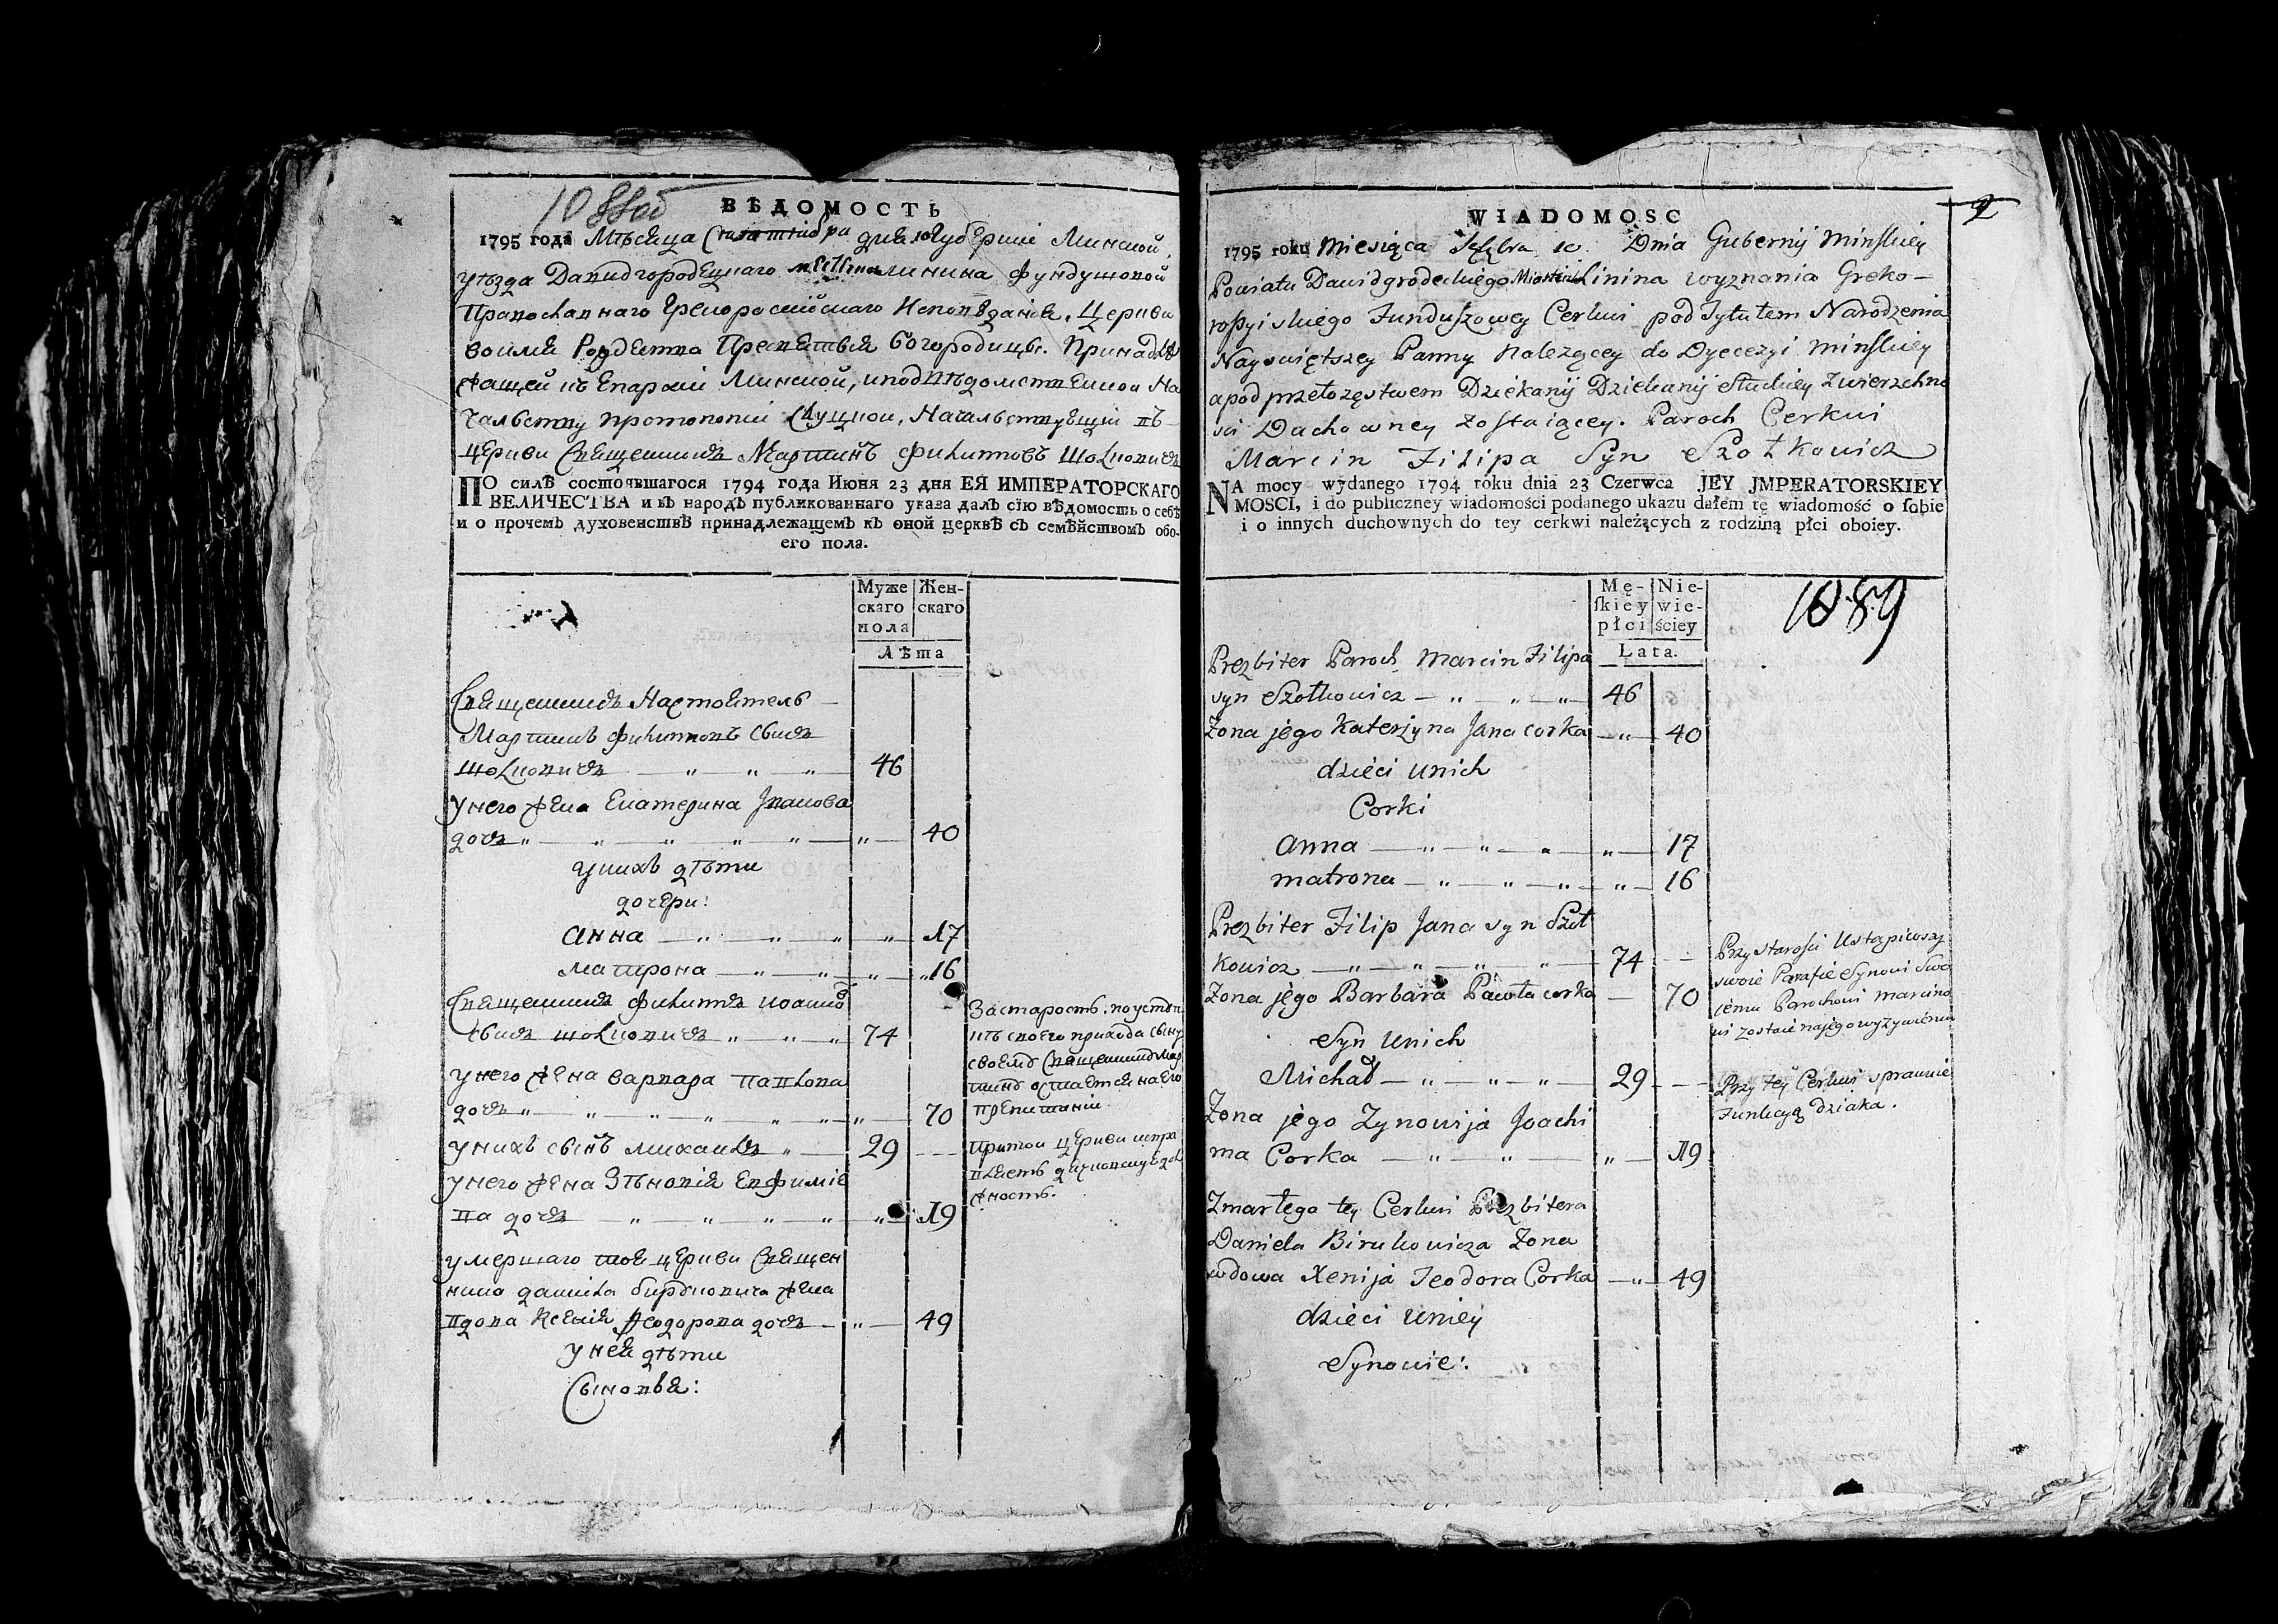 1088об
ВѢДОМОСТЬ
1795 года Мѣсяца Сентября дня 10 Губерніи Минской,
уѣзда Давидгородецкаго местечка Линина фундушовой
Православнаго Грекороссійскаго Исповѣданія, Церкви
во имя Рождества Пресвятыя Богородицы. Принадле
жащей къ Епархіи Минской, и подвѣдомственной На
чальству протопопіи Слуцкой, Начальствующій въ
церкви Священникъ Мартинъ Филиповъ Шолковичъ
ПО силѣ состоявшагося 1794 года Июня 23 дня ЕЯ ИМПЕРАТОРСКАГО
ВЕЛИЧЕСТВА и къ народѣ публикованнаго указа далъ сїю вѣдомость о себѣ
и о прочемъ духовенствѣ принадлежащемъ къ оной церквѣ съ семѣйствомъ обо-
его пола.
Муже
скаго
пола
Жен-
скаго
Лѣта
Священникъ Настоятель
Мартинъ Филиповъ сынъ
Шолковичъ 46
У него жена Екатерина Іванова
дочь 40
у нихъ дѣти
дочери:
Анна 17
Матрона 16
Священникъ Филипъ Иоанновъ
сынъ Шолковичъ 74
За старость. по уступ
своего прихода сыну
своему Священнику Мар
тину остается на его
препитаніи
У него жена Варвара Павлова
дочь 70
У нихъ сынъ Михаилъ 29
При той церкви испра
вляетъ дячковскую дол
жность.
У него жена Зѣновія Евфиміе
ва дочь 19
умершаго тоя церкви Священ
ника Даниила Бируковича жена
вдова Ксенія Феодорова дочь 49
у нея дѣти
Сыновья:
2
WIADOMOSC
1795 roku Miesiąca 10. Dnia Gubernij Minskiey
Powiatu Dawidgrodeckiego Miasteczka Linina wyznania Greko-
rossyiskiego Funduszowey Cerkwi pod Tytułem Narodzenia
Nayswiętszey Panny Nalezącey do Dyecezyi Minskiey
a pod przełozęstwem Dziekanij Dziekanij Słuckiey Zwierzchno
sci Duchowney zostaiącey. Paroch Cerkwi
Marcin Filipa Syn Szołkowicz
NA mocy wydanego 1794 roku dnia 23 Czerwca JEY JMPERATORSKIEY
MOSCI, i do publiczney wiadomości podanego ukazu dałem tę wiadomość o ſobie
i o innych duchownych do tey cerkwi należących z rodziną płci oboiey.
Mę-
ſkiey
płci
Nie-
wie-
ściey
Lata.
1089
Prezbiter Paroch Marcin Filipa
syn Szołkowicz 46
Zona jego Katerzyna Jana corka 40
dzieci u nich
Corki
Anna 17
Matrona 16
Prezbiter Filip Jana syn Szoł
kowicz 74
Przy starosci Ustąpiwszy
swoie Parafie Synowi Swo
iemu Parochowi Marcino
wi zostaie na jego wyzywieniu
Zona jego Barbara Pawła corka 70
Syn u nich
Michał 29
Przy tey Cerkwi sprawuie
Funkcyą dziaka.
Zona jego Zynowija Joachi
ma Corka 19
Zmarłego tey Cerkwi Prezbitera
Daniela Birukowicza Zona
wdowa Xenija Teodora Corka 49
dzieci u niey
Synowie: